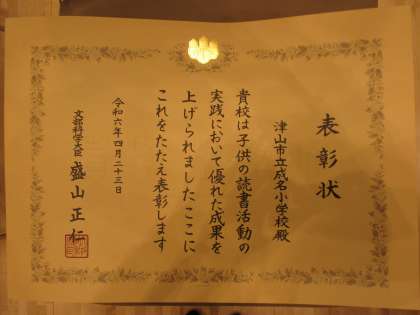 表彰状
津山市立成名小学校殿
貴校は子供の読書活動の
実践において優れた成果を
上げられましたここに
これをたたえ表彰します
令和六年四月二十三日
文部科学大臣 盛山正仁